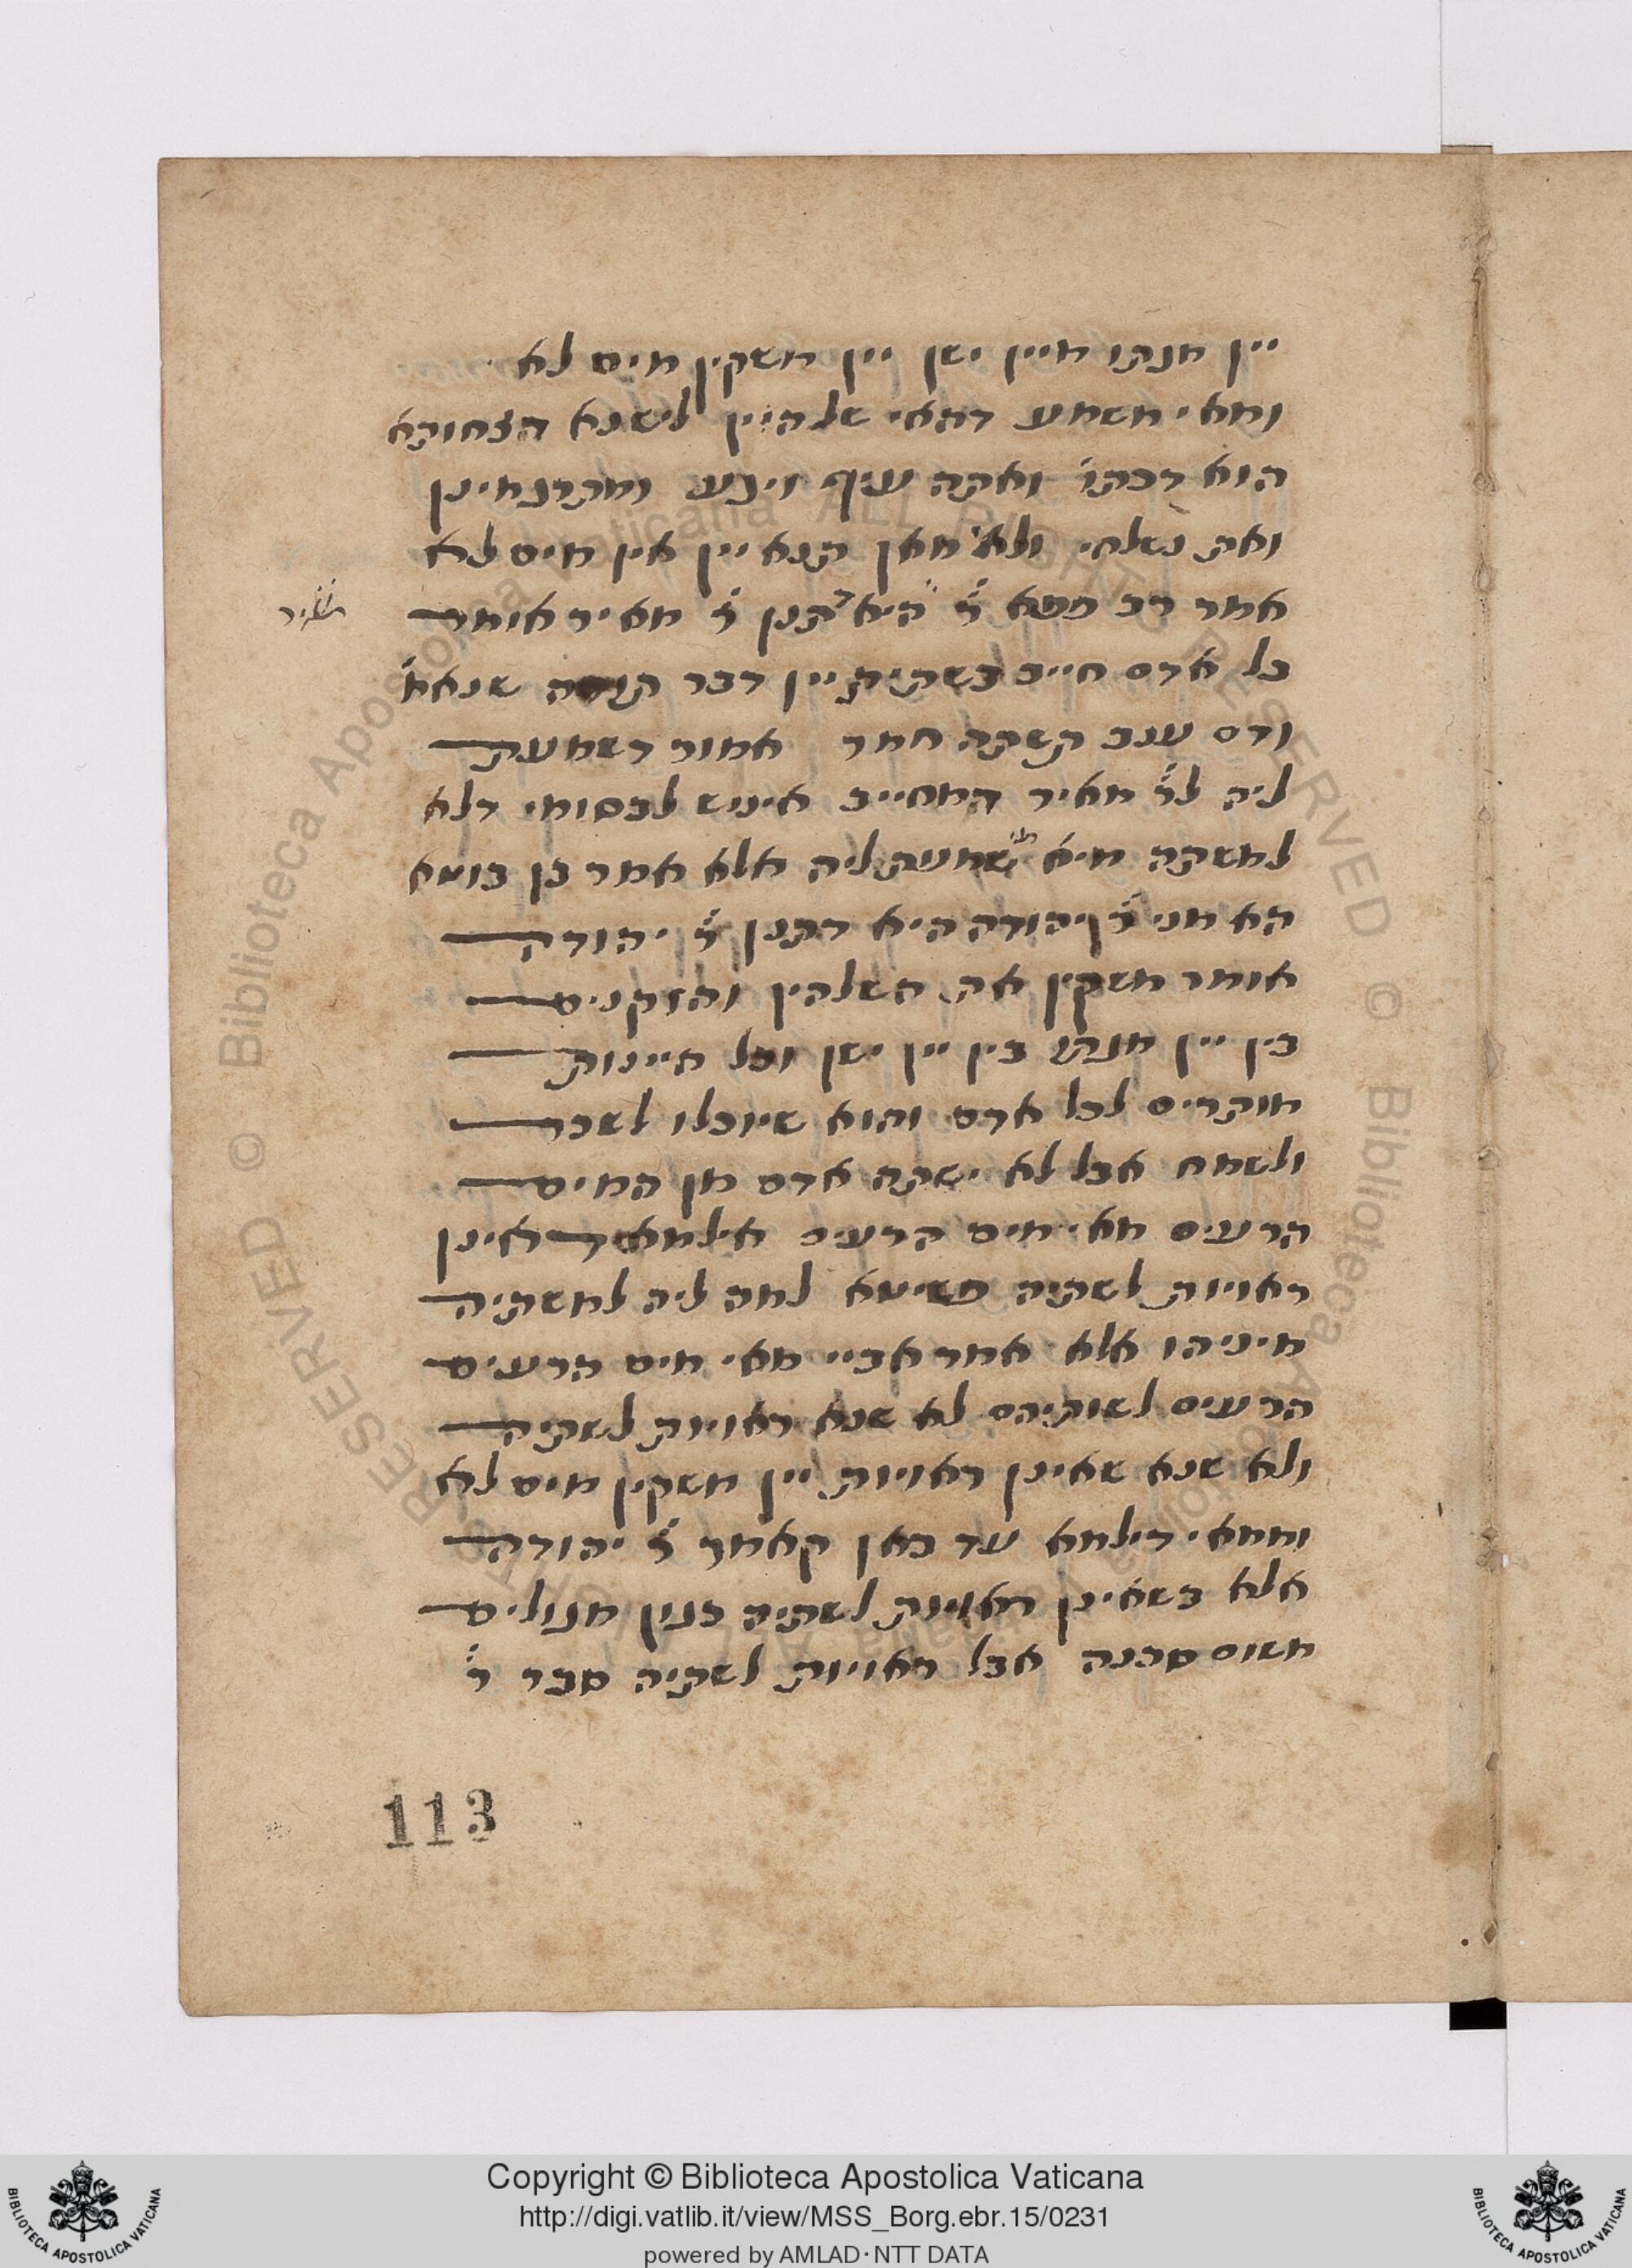 יין מנתו מיין ישן יין משקין מים לא
ומאי משמע דהאי שלהיין לישנא דצחותא
הוא דכתו ואתה עיף ויגע ומתרגמינן
ואת משלהי ולאי מאן תנא יין אין מים לא
אמר רב פפא ר׳ היא דתנן ר׳ מאיר אומר
כל אדם חייב בשתית יין דבר תורה שנאמ׳
ודם ענב תשתה חמר אמור דשמעת
ליה לר׳ מאיר דמחייב איניש לבסומי דלא
למשתה מיא שמעת ליה אלא אמר בן בוטא
הא מני ר׳ יהודה היא דתנן ר׳ יהודה
אומר משקין את השלהין והזקנים
בין יין מנתו בין יין ישן וכל היינות
מותרים לכל אדם והוא שיוכלו לשכר
ולשמח אבל לא ישתה אדם מן המים
הרעים מאי מים הרעים אילמא דאינן
ראויות לשתיה פשיטא למה ליה למשתיה
מיניהו אלא אמר אביי מאי מים הרעים
הרעים לשותיהם לא שנא ראויות לשתיה
ולא שנא שאינן ראויות יין משקין מים לא
וממאי דילמא עד כאן קאמר ר׳ יהודה
אלא בשאינן ראויות לשתיה כגון מגולים
משום סכנה אבל ראויות לשתיה סבר ר׳
113
RESERVED © Biblioteca Apostolica Vaticana ALL RIGHTS RESERVED © Biblioteca Apostolica Vaticana ALL RIGHTS
Copyright © Biblioteca Apostolica Vaticana
http://digi.vatlib.it/view/MSS_Borg.ebr.15/0231
powered by AMLAD · NTT DATA
BIBLIOTECA APOSTOLICA VATICANA
BIBLIOTECA APOSTOLICA VATICANA